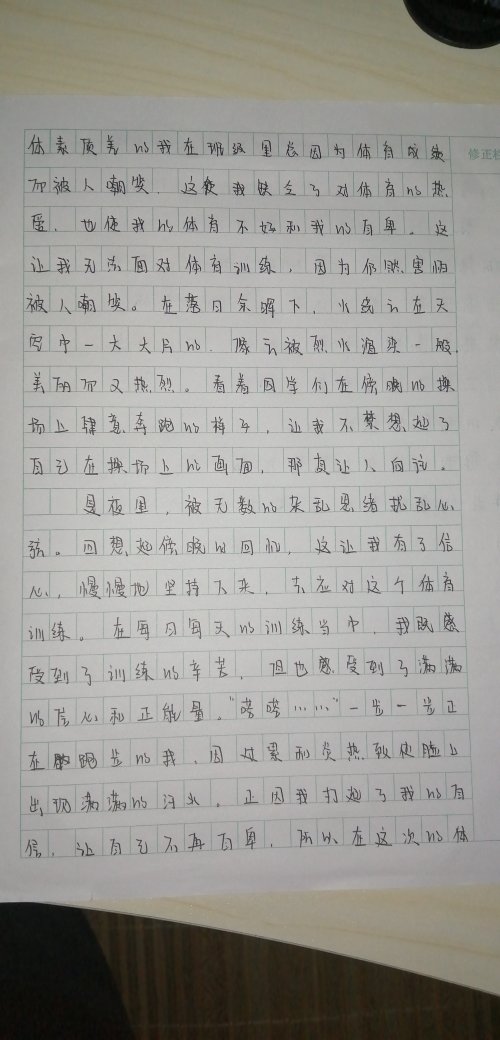 体素质差的我在班级里总因为体育成绩
而被人嘲笑，这使我缺乏了对体育的热
爱，也使我的体育不好和我的自卑。这
让我无法面对体育训练，因为仍然害怕
被人嘲笑。在落日余晖下，火烧云在天
空中一大大片的，像云被烈火渲染一般，
美丽而又热烈。看着同学们在傍晚的操
场上肆意奔跑的样子，让我不禁想起了
自己在操场上的画面，那真让人向往。
夏夜里，被无数的杂乱思绪扰乱心
弦。回想起傍晚的回忆，这让我有了信
心，慢慢地坚持下来，去应对这个体育
训练。在每日每天的训练当中，我既感
受到了训练的辛苦，但也感受到了满满
的信心和正能量。“嗒嗒……”一步一步正
在跑步的我，因过累和炎热致使脸上
出现满满的汗水。正因我打起了我的自
信，让自己不再自卑，所以在这次的体
修正